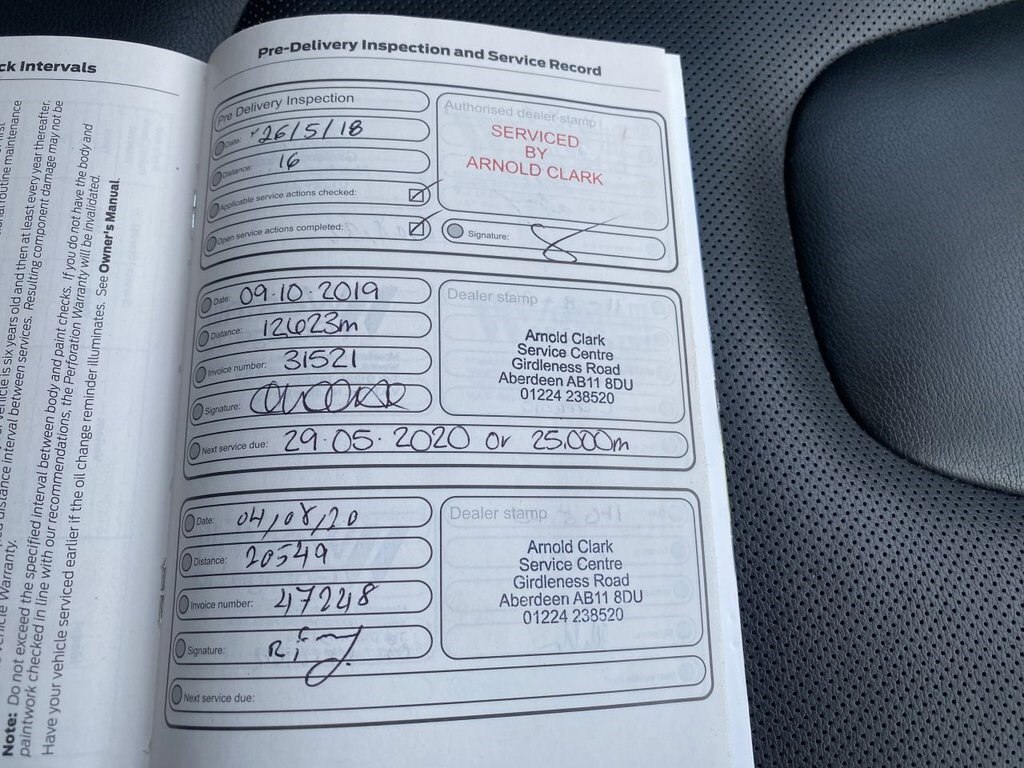 ck Intervals
routine maintenance
vehicle is six years old and then at least every year thereafter.
distance interval between services. Resulting component damage may not be
Vehicle Warranty.
Note: Do not exceed the specified interval between body and paint checks. If you do not have the body and
paintwork checked in line with our recommendations, the Perforation Warranty will be invalidated.
Have your vehicle serviced earlier if the oil change reminder illuminates. See Owner's Manual.
Pre-Delivery Inspection and Service Record
Pre Delivery Inspection
Date: 26/5/18
Distance: 16
Applicable service actions checked:
Open service actions completed:
Authorised dealer stamp
SERVICED
BY
ARNOLD CLARK
Signature:
Date: 09.10.2019
Distance: 12623m
Invoice number: 31521
Signature:
Next service due: 29.05.2020 or 25.000m
Dealer stamp
Arnold Clark
Service Centre
Girdleness Road
Aberdeen AB11 8DU
01224 238520
Date: 04/08/20
Distance: 20549
Invoice number: 47248
Signature:
Next service due:
Dealer stamp
Arnold Clark
Service Centre
Girdleness Road
Aberdeen AB11 8DU
01224 238520